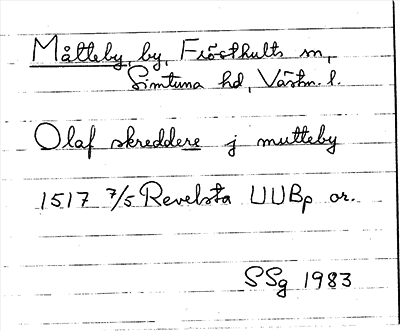 Måtteby, by, Frösthults sn,
Simtuna hd, Västm. l.
Olaf skreddere j mutteby
1517 7/5 Revelsta UUBp or.
SSg 1983